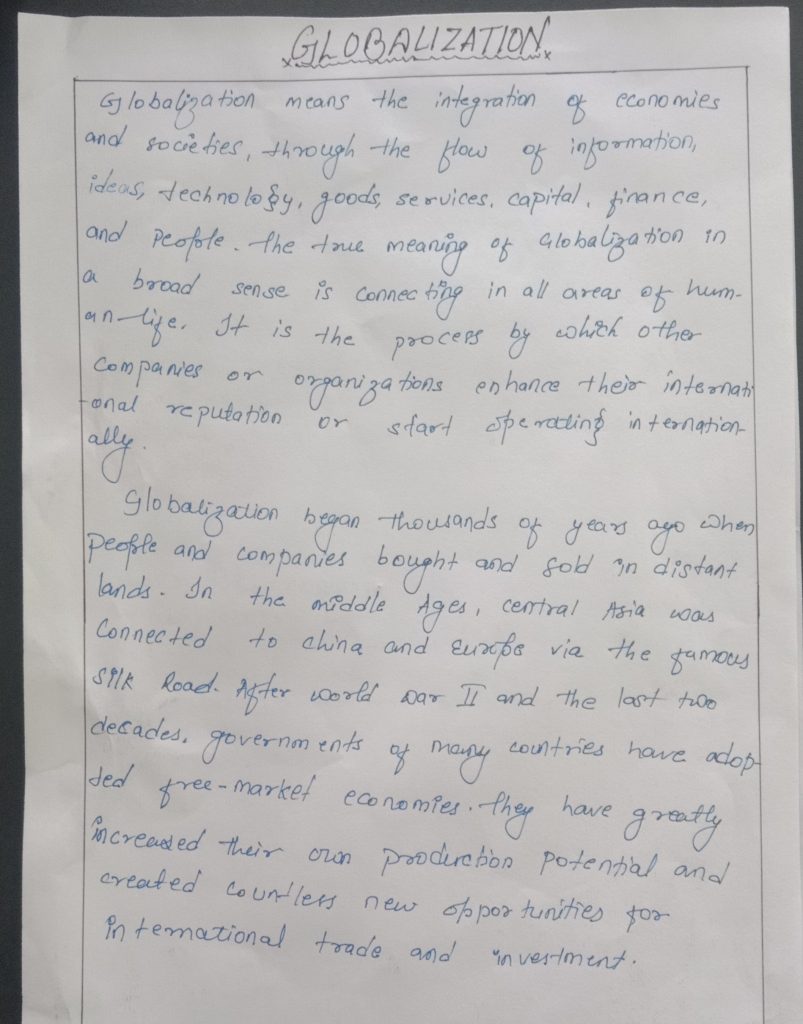 GLOBALIZATION
Globalization means the integration of economies
and societies, through the flow of information,
ideas, technology, goods, services, capital, finance,
and people. The true meaning of Globalization in
a broad sense is connecting in all areas of hum-
an-life. It is the process by which other
Companies or organizations enhance their internati
-onal reputation or start operating internation-
ally.
Globalization began thousands of years ago when
people and companies bought and sold in distant
lands. In the middle Ages, central Asia was
Connected to china and Europe via the famous
Silk Road. After world war II and the last two
decades, governments of many countries have adop-
ted free-market economies. They have greatly
increased their own production potential and
created countless new opportunities for
international trade and investment.